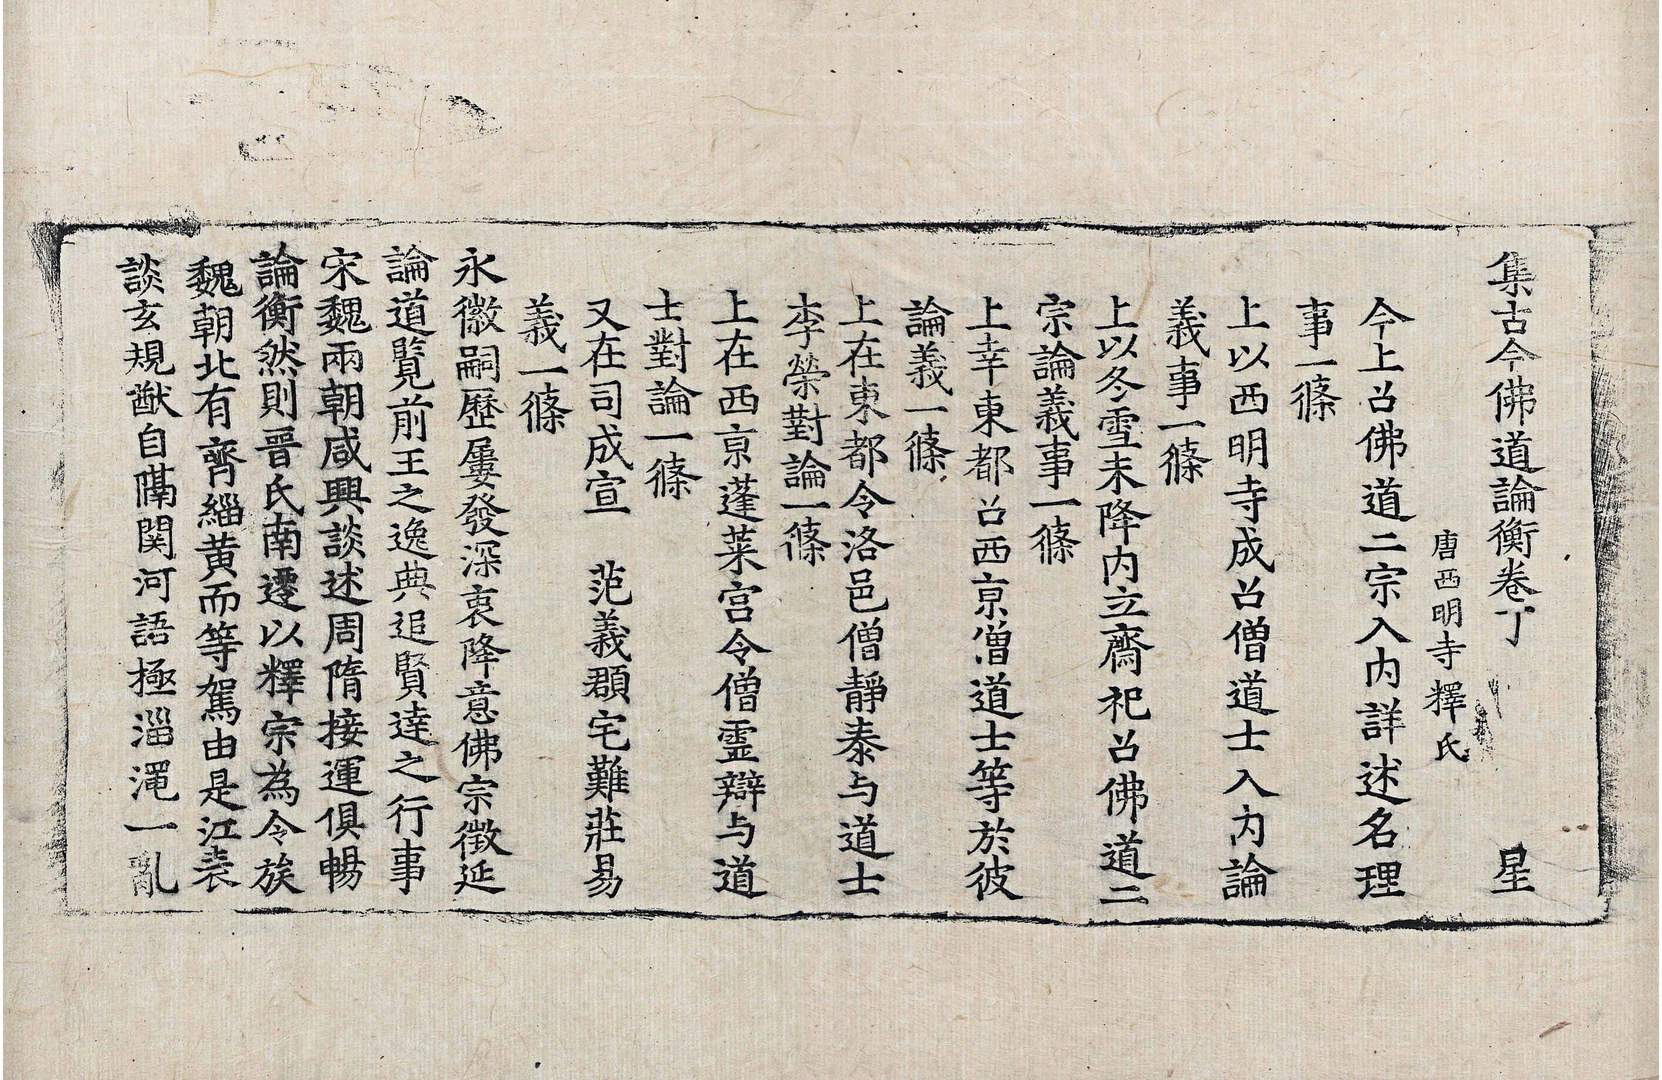 集古今佛道論衡卷丁 星
唐西明寺釋氏
今上召佛道二宗入内詳述名理
事一條
上以西明寺成召僧道士入内論
義事一條
上以冬雪未降内立齋祀召佛道二
宗論義事一條
上幸東都召西京僧道士等於彼
論義一條
上在東都令洛邑僧靜泰与道士
李榮對論一條
上在西京蓬莱宫令僧霊辯与道
士對論一條
又在司成宣 范義頵宅難莊易
義一條
永徽嗣歷屢發深衷降意佛宗徴延
論道覧前王之逸典追賢達之行事
宋魏兩朝咸興談述周隋接運俱暢
論衡然則晋氏南遷以釋宗為令族
魏朝北有齊緇黄而等駕由是江表
談玄規猷自隔関河語極淄澠一亂